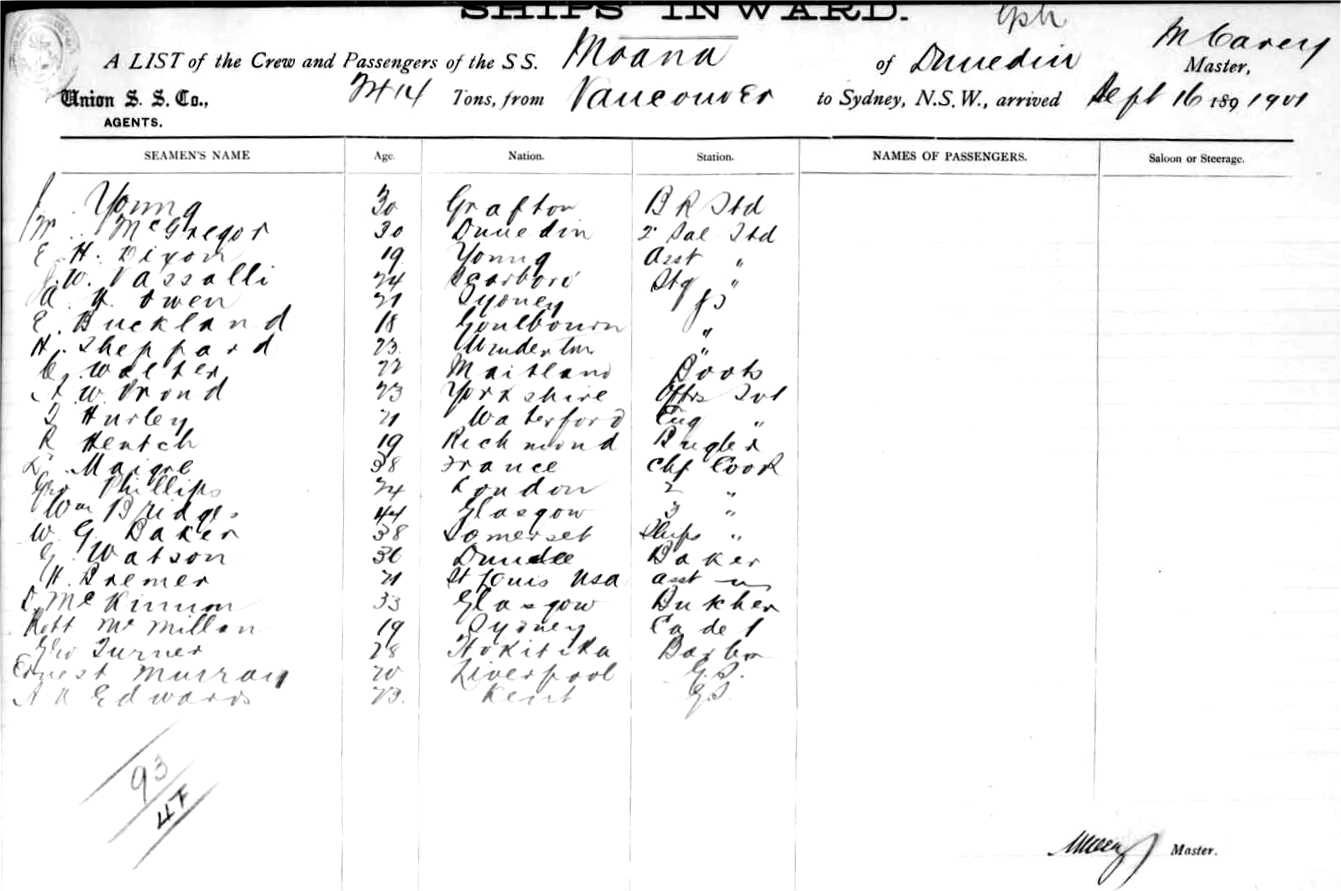 SHIPS INWARD.
A LIST of the Crew and Passengers of the S S. Moana of Dunedin M Carey Master,
Union S. S. Co., Tons, from Vancouver to Sydney, N.S.W., arrived Sept 16 189 1901
AGENTS.
SEAMEN'S NAME Age. Nation. Station. NAMES OF PASSENGERS. Saloon or Steerage.
Young 30 Grafton B R Std
McGregor 30 Dunedin 2 Sal Std
E. H. Dixon 19 Young Asst "
W. Vassalli 24 Scarboro Stg "
A. Owen 21 Sydney
E. Buckland 18 Goulbourn "
H. Sheppard 23 "
C. Walter 22 Maitland Boots
A W. Prond 23 Yorkshire Offrs Svt
Hurley 21 Waterford Eng "
R Hentch 19 Richmond Bugler
Maigre 38 France Chf Cook
Geo Phillips 24 London 2 "
Wm Bridges 44 Glasgow 3 "
W. G. Baker 38 Somerset Ships "
G. Watson 36 Dundee Baker
H. Bremer 21 St Louis USA asst "
D McKinnon 33 Glasgow Butcher
Robt McMillan 19 Sydney Cadet
Geo Turner 28 Hokitika Barber
Ernest Murray 20 Liverpool G.S.
A R Edwards 23. Kent G.S.
93
47
Master.